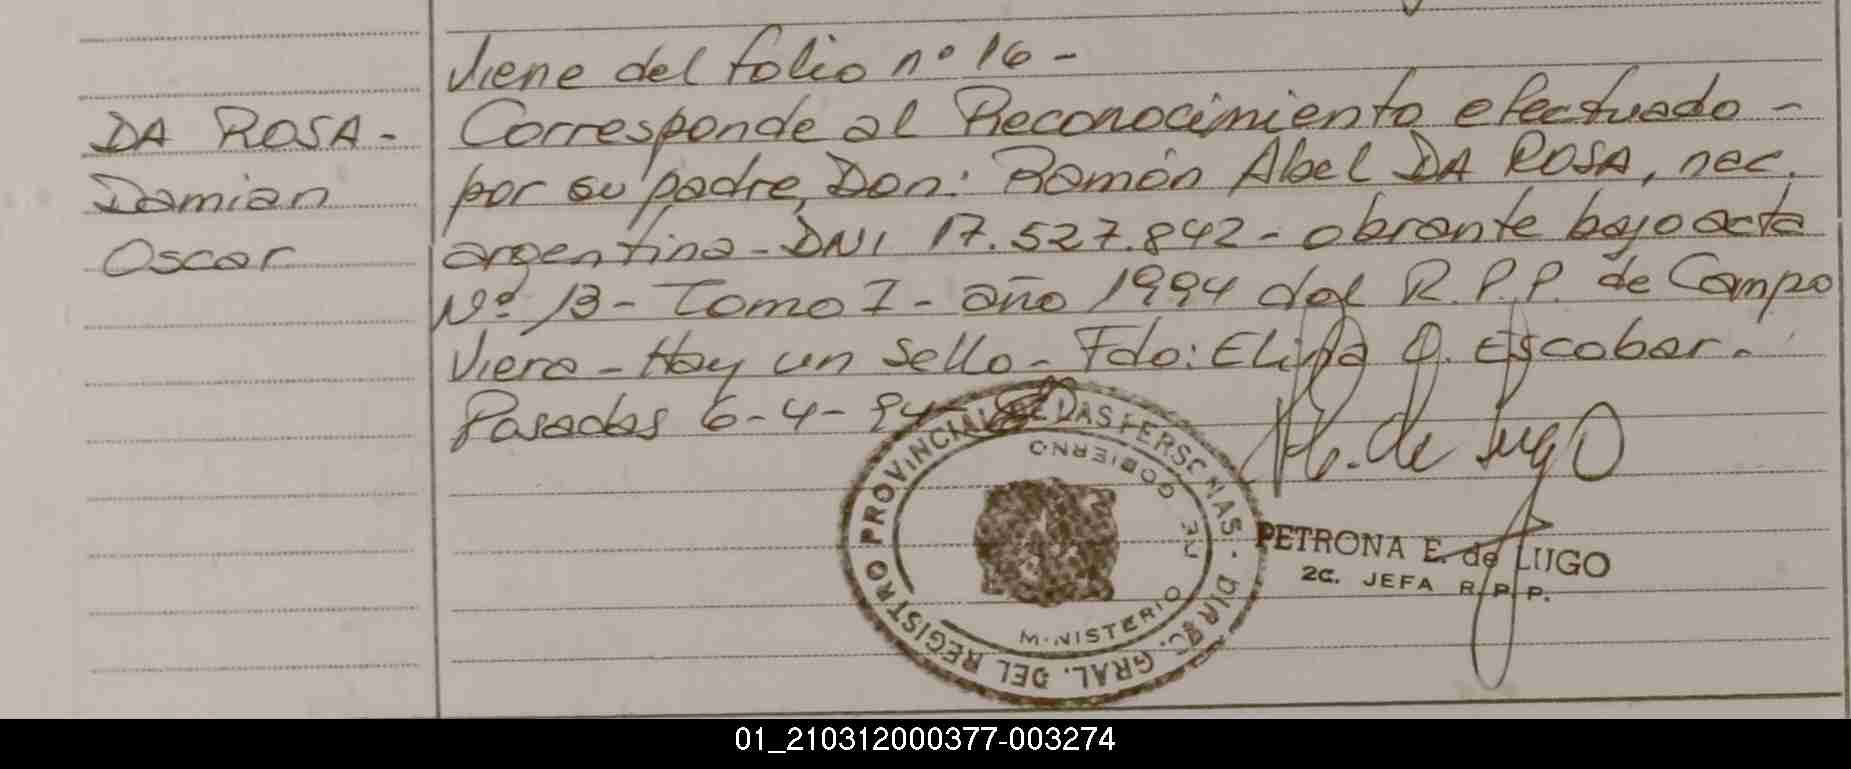 Viene del folio nº 16 -
DA ROSA -
Damian
Oscar
Corresponde al Reconocimiento efectuado -
por su padre, Don: Ramón Abel DA ROSA, nac.
argentina - DNI 17.527.842 - obrante bajo acta
Nº 13 - Tomo I - año 1994 del R.P.P. de Campo
Viera - Hay un sello - Fdo: Elida O. Escobar.
Posadas 6-4-94
de Lugo
REGISTRO PROVINCIAL DE LAS PERSONAS. DIREC. GRAL. DEL
MINISTERIO DE GOBIERNO
PETRONA E. de LUGO
2a. JEFA R.P.P.
01_210312000377-003274